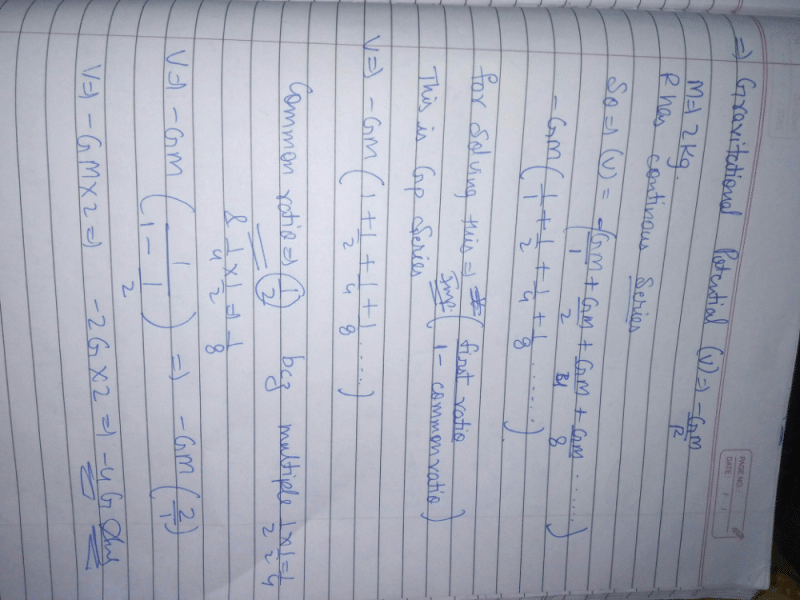 PAGE NO.
DATE
=) Gravitational Potential (V) =) -GM/r
M =) 2 Kg.
R has continous Series
So =) (V) = -(GM/1 + GM/2 + GM/4 + GM/8 ......)
-GM (1/1 + 1/2 + 1/4 + 1/8 ......)
for Solving this =) (first ratio / 1 - common ratio)
Imp.
This is Gp Series
V =) -GM (1 + 1/2 + 1/4 + 1/8 .....)
Common ratio =) (1/2) bcz multiple 1/2 x 1/2 = 1/4
& 1/4 x 1/2 =) 1/8
V =) -GM (1 / 1 - 1/2) =) -GM (2/1)
V =) -GM x 2 =) -2G x 2 =) -4G Ans